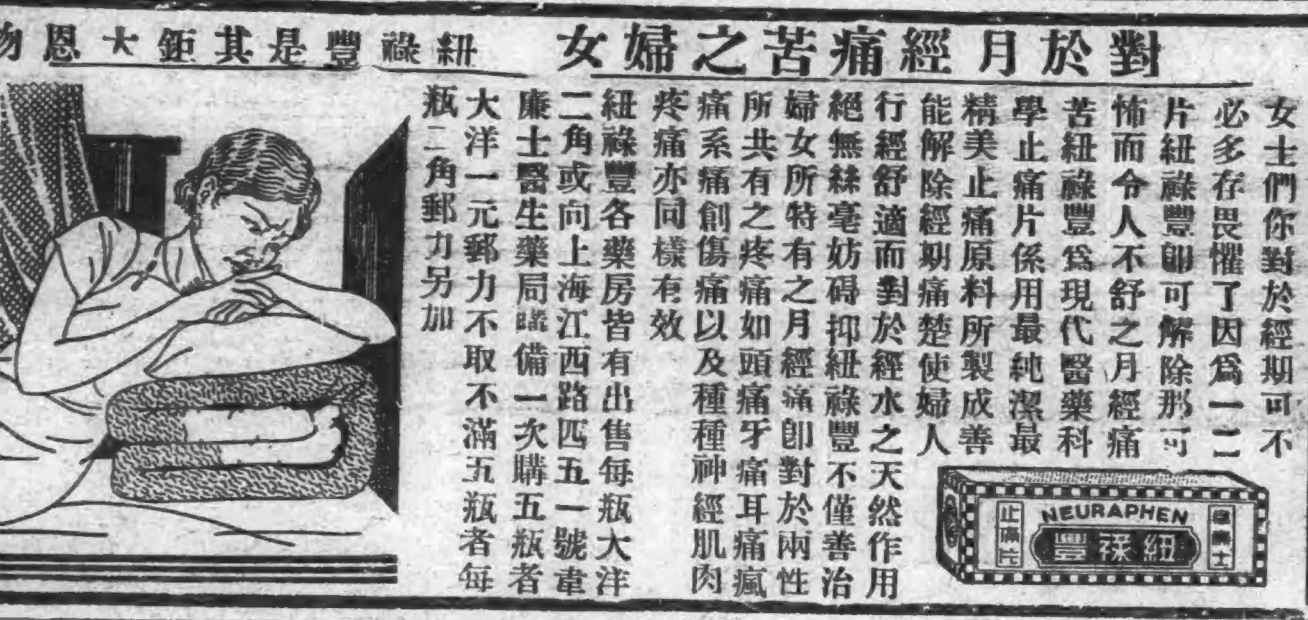 對於月經痛苦之婦女
紐祿豐是其鉅大恩物
女士們你對於經期可不
必多存畏懼了因爲一二
片紐祿豐卽可解除那可
怖而令人不舒之月經痛
苦紐祿豐爲現代醫藥科
學止痛片係用最純潔最
精美止痛原料所製成善
能解除經期痛楚使婦人
行經舒適而對於經水之天然作用
絕無絲毫妨碍抑紐祿豐不僅善治
婦女所特有之月經痛卽對於兩性
所共有之疼痛如頭痛牙痛耳痛瘋
痛系痛創傷痛以及種種神經肌肉
疼痛亦同樣有效
紐祿豐各藥房皆有出售每瓶大洋
二角或向上海江西路四五一號韋
廉士醫生藥局 備一次購五瓶者
大洋一元郵力不取不滿五瓶者每
瓶二角郵力另加
韋廉士
NEURAPHEN
紐祿豐
止痛片